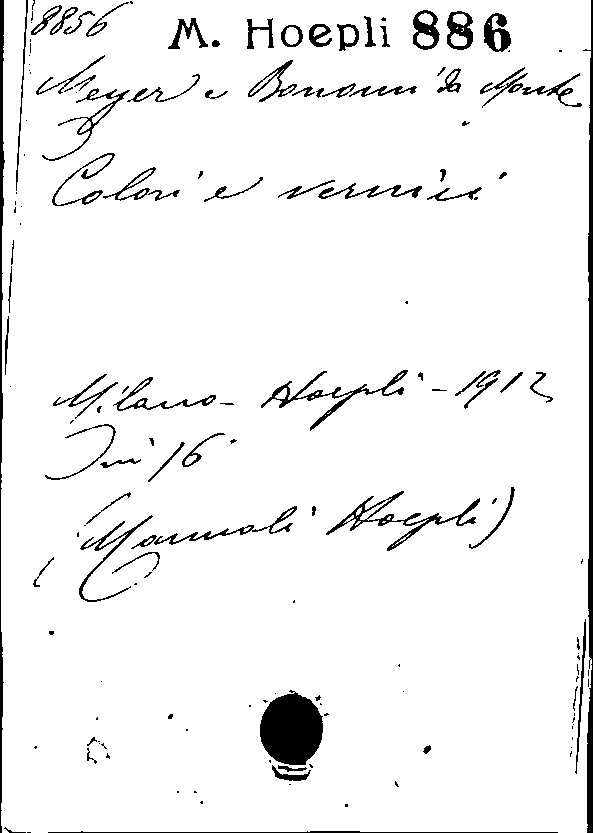 8856 M. Hoepli 886
Meyer e Bonomi da Monte
Colori e vernici
Milano - Hoepli - 1912
In 16°
(Manuali Hoepli)